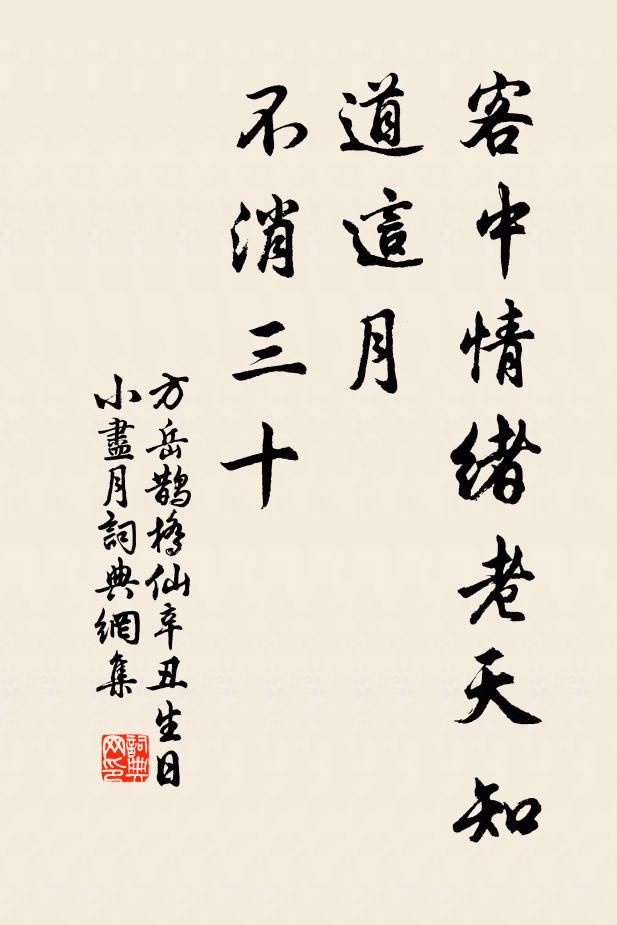 客中情緒老天知
道這月
不消三十
方岳鵲橋仙辛丑生日
小盡月詞典網集
詞典
网印